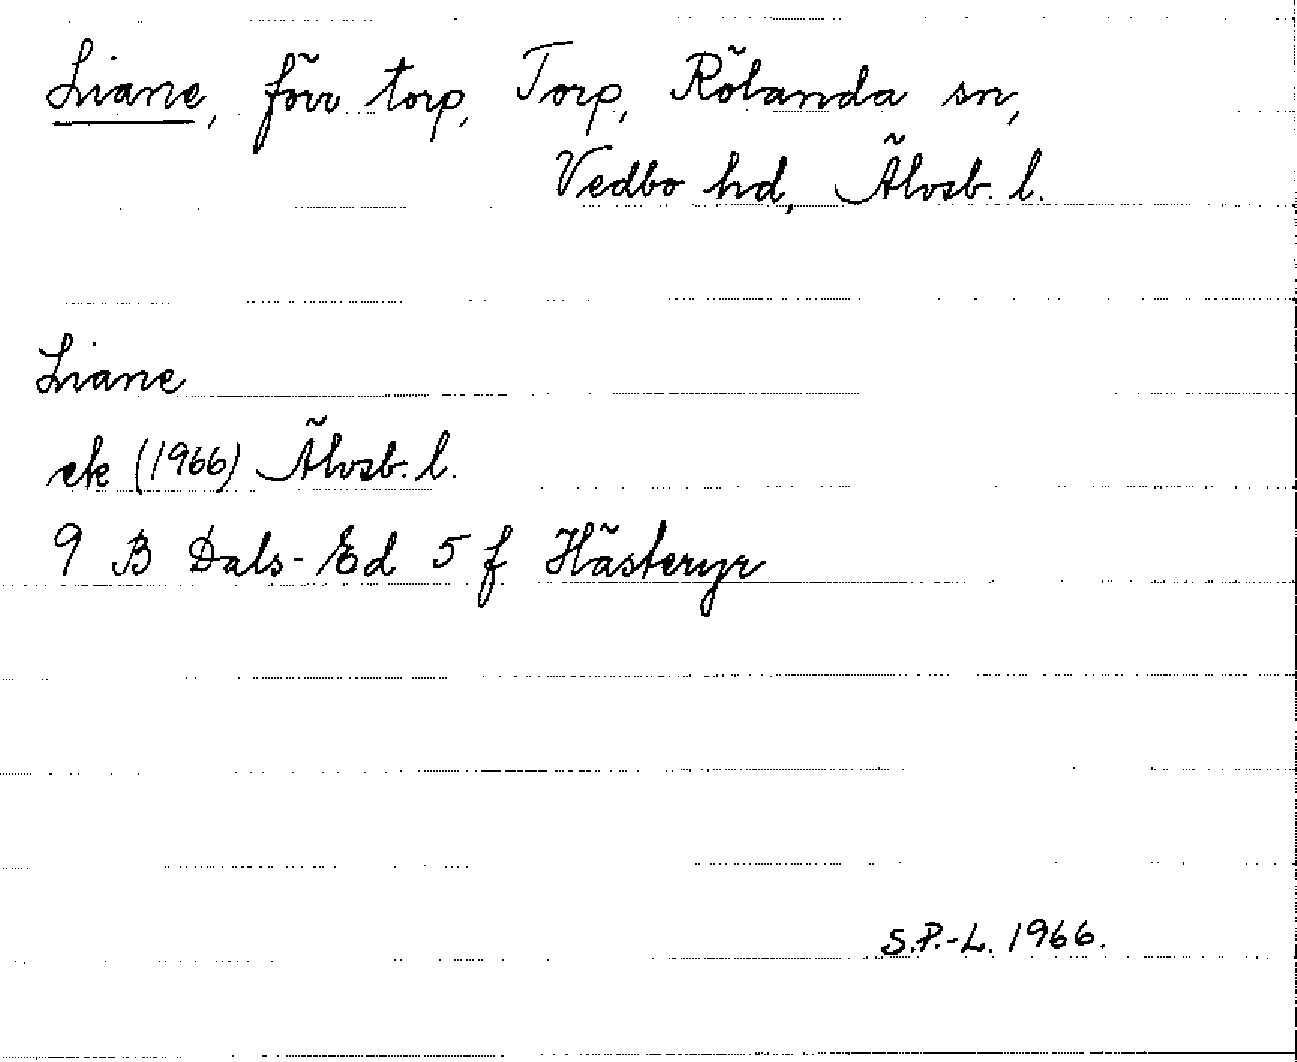 Liane, förr torp, Torp, Rölanda sn,
Vedbo hd, Älvsb. l.
Liane
ek (1966) Älvsb. l.
9 B Dals-Ed 5 f Hästeryr
S.P.-L. 1966.